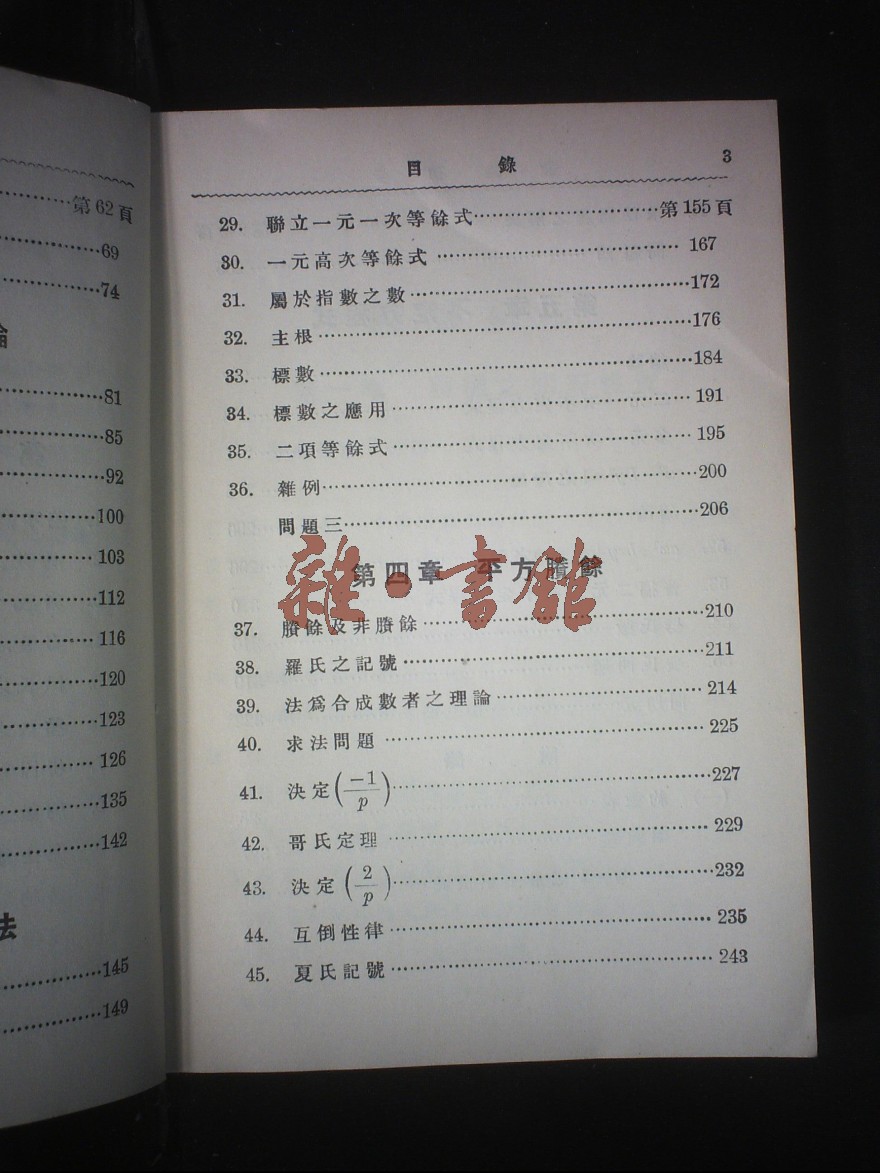 第62頁
69
74
論
81
85
92
100
103
112
116
120
123
126
135
142
法
145
149
目 錄 3
29. 聯立一元一次等餘式 第155頁
30. 一元高次等餘式 167
31. 屬於指數之數 172
32. 主根 176
33. 標數 184
34. 標數之應用 191
35. 二項等餘式 195
36. 雜例 200
問題三 206
第四章 平方賸餘
雜·書館
37. 賸餘及非賸餘 210
38. 羅氏之記號 211
39. 法爲合成數者之理論 214
40. 求法問題 225
41. 決定(-1/p) 227
42. 哥氏定理 229
43. 決定(2/p) 232
44. 互倒性律 235
45. 夏氏記號 243